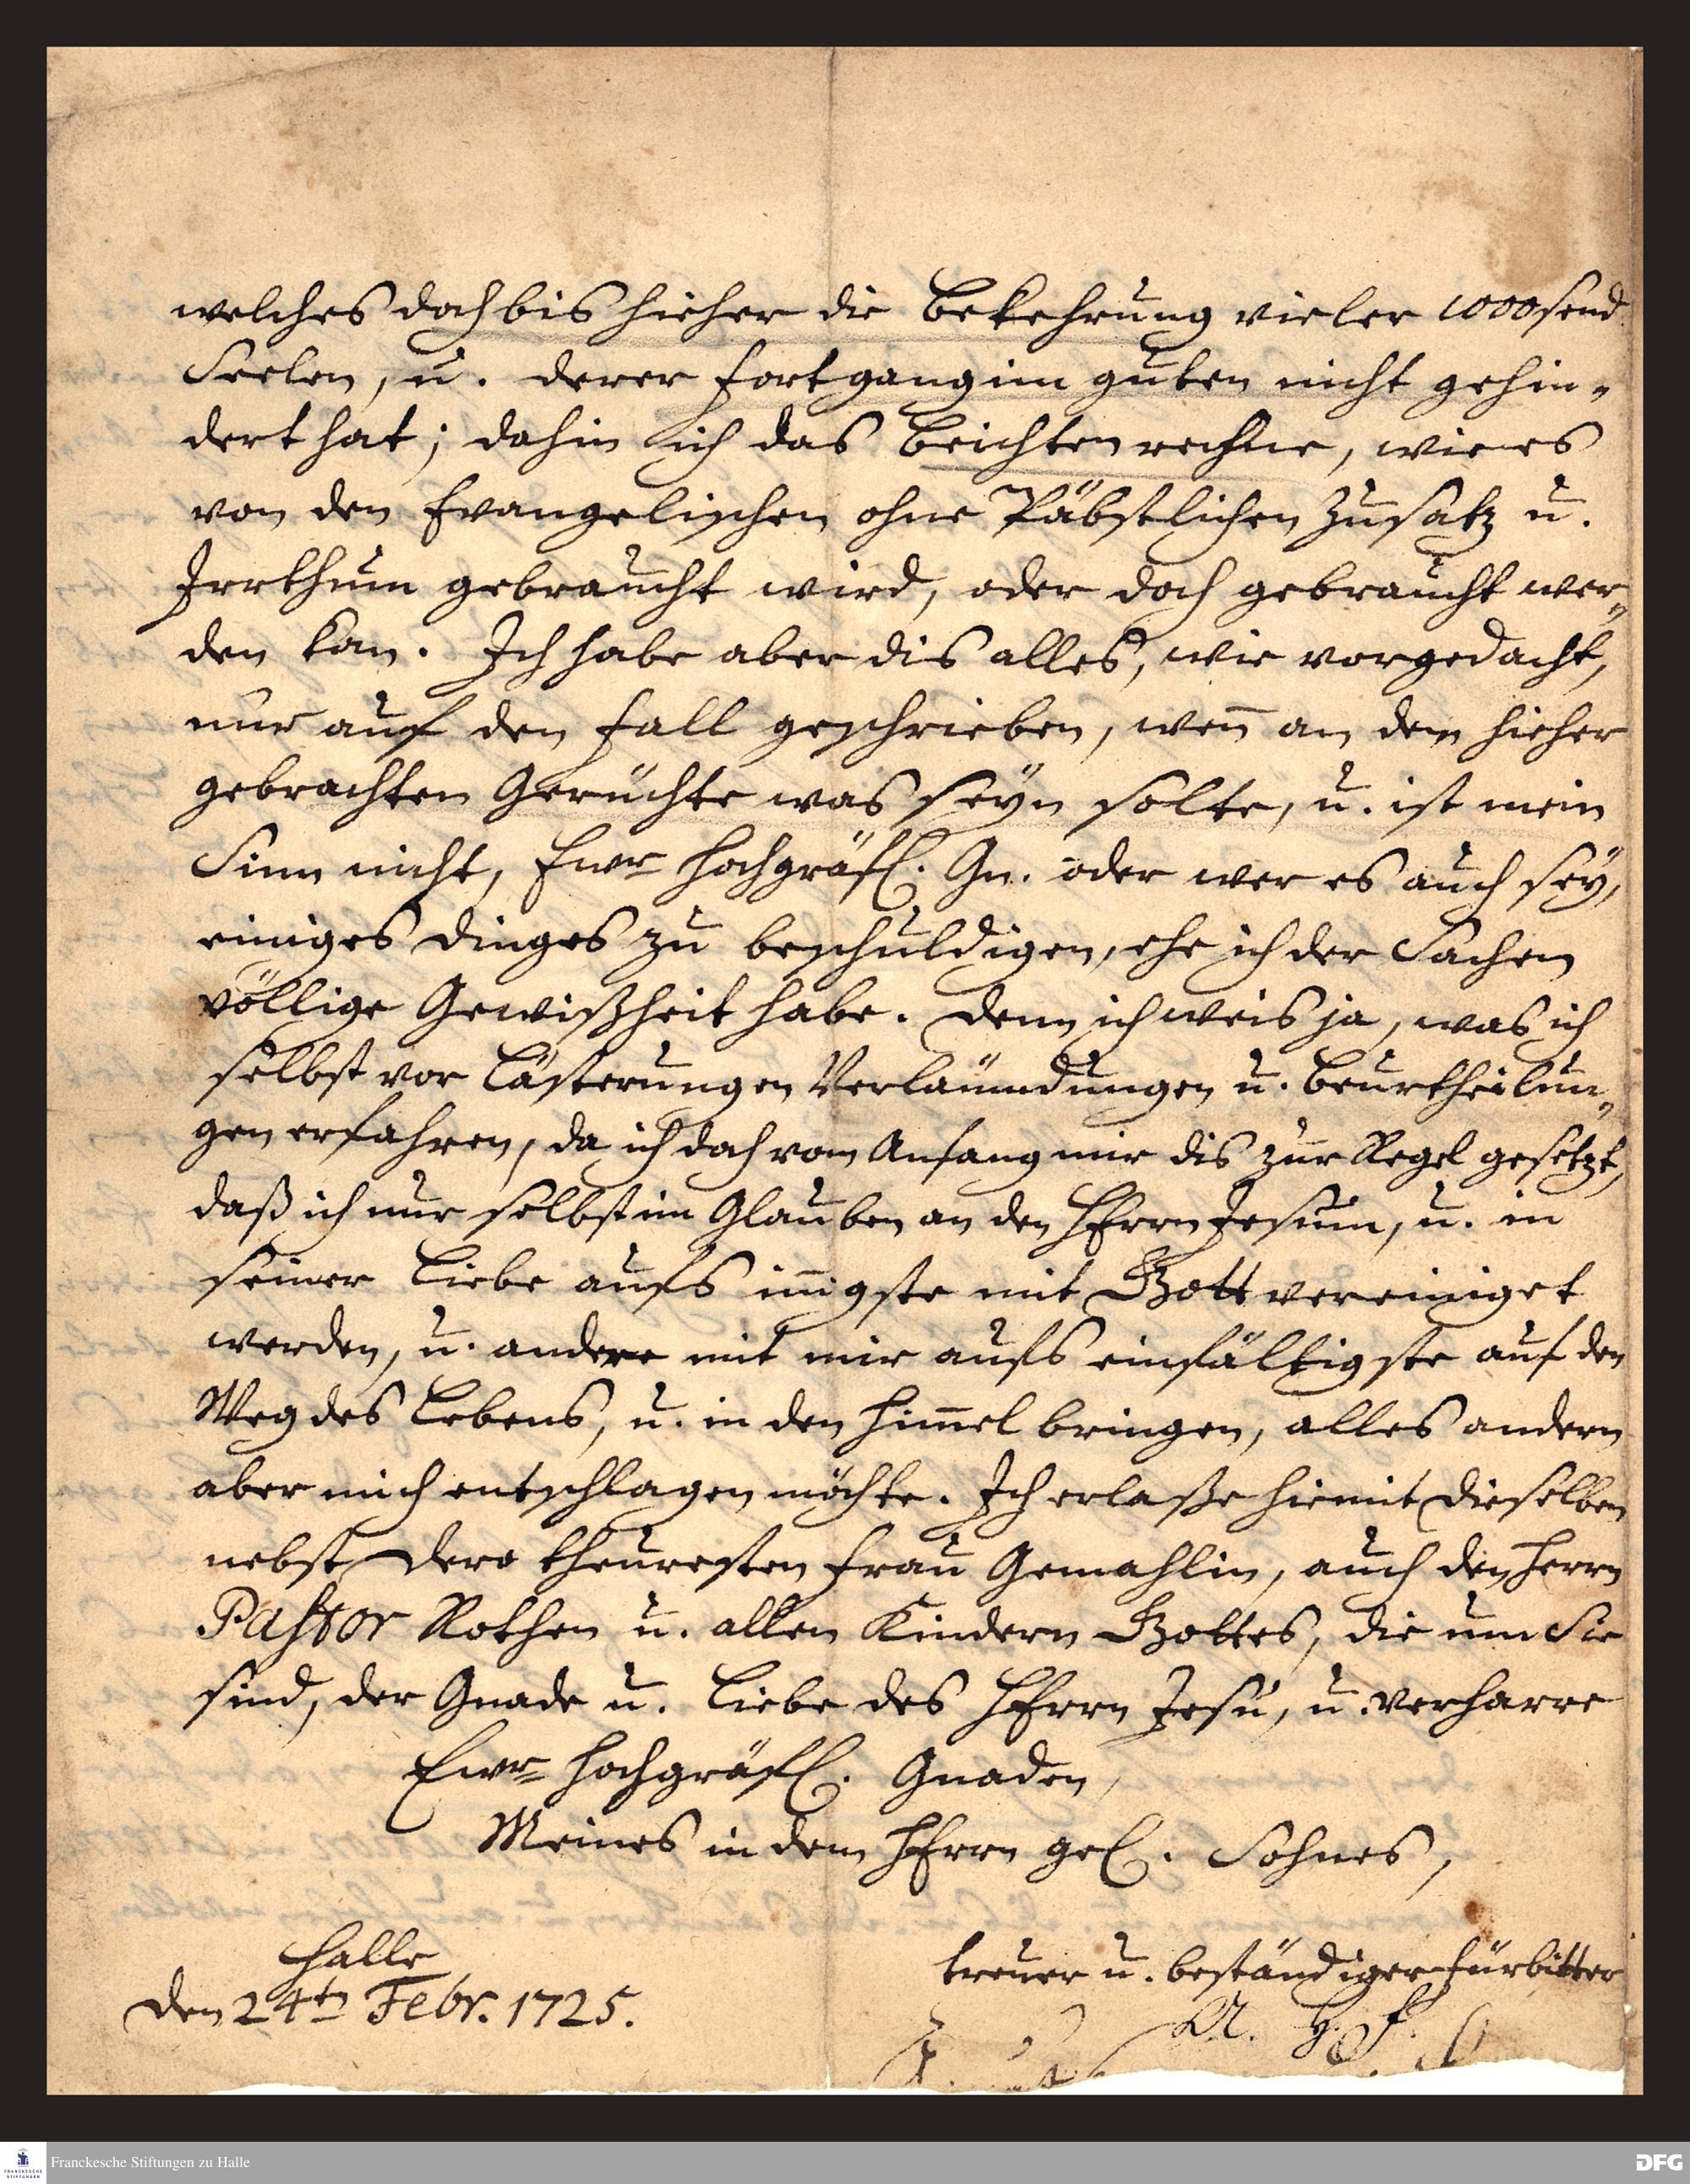 welches doch bis hieher die Bekehrung vieler 1000send
Seelen, u. derer Fortgang im guten nicht gehin-
dert hat; dahin ich das Beichten rechne, wie es
von den Evangelischen ohne Päbstlichen Zusatz u.
Irrthum gebraucht wird, oder doch gebraucht wer-
den kan. Ich habe aber dis alles, wie vorgedacht,
nur auf den Fall geschrieben, weñ an dem hieher
gebrachten Gerüchte was seyn solte, u. ist mein
Sinn nicht, Ewr Hochgräfl. Gn. oder wer es auch sey,
einiges Dinges zu beschuldigen, ehe ich der Sachen
völlige Gewißheit habe. Denn ich weis ja, was ich
selbst vor Lästerungen Verläumdungen u. Beurtheilun-
gen erfahren, da ich doch vom Anfang mir dis zur Regel gesetzt,
daß ich nur selbst im Glauben an den HErrn Jesum, u. in
seiner Liebe aufs iñigste mit Gott vereiniget
werden, u. andere mit mir aufs einfältigste auf den
Weg des Lebens, u. in den Him̃el bringen, alles andern
aber mich entschlagen möchte. Ich erlaße hiemit Dieselben
nebst Dero theuresten Frau Gemahlin, auch den Herrn
Pastor Rothen u. allen Kindern Gottes, die um Sie
sind, der Gnade u. Liebe des HErrn Jesu, u. verharre
Ewr Hochgräfl. Gnaden,
Meines in dem HErrn gel. Sohnes,
treuer u. beständiger Fürbitter
Halle
den 24tn Febr. 1725.
A. H. F.
Franckesche Stiftungen zu Halle
FRANCKESCHE
STIFTUNGEN
DFG